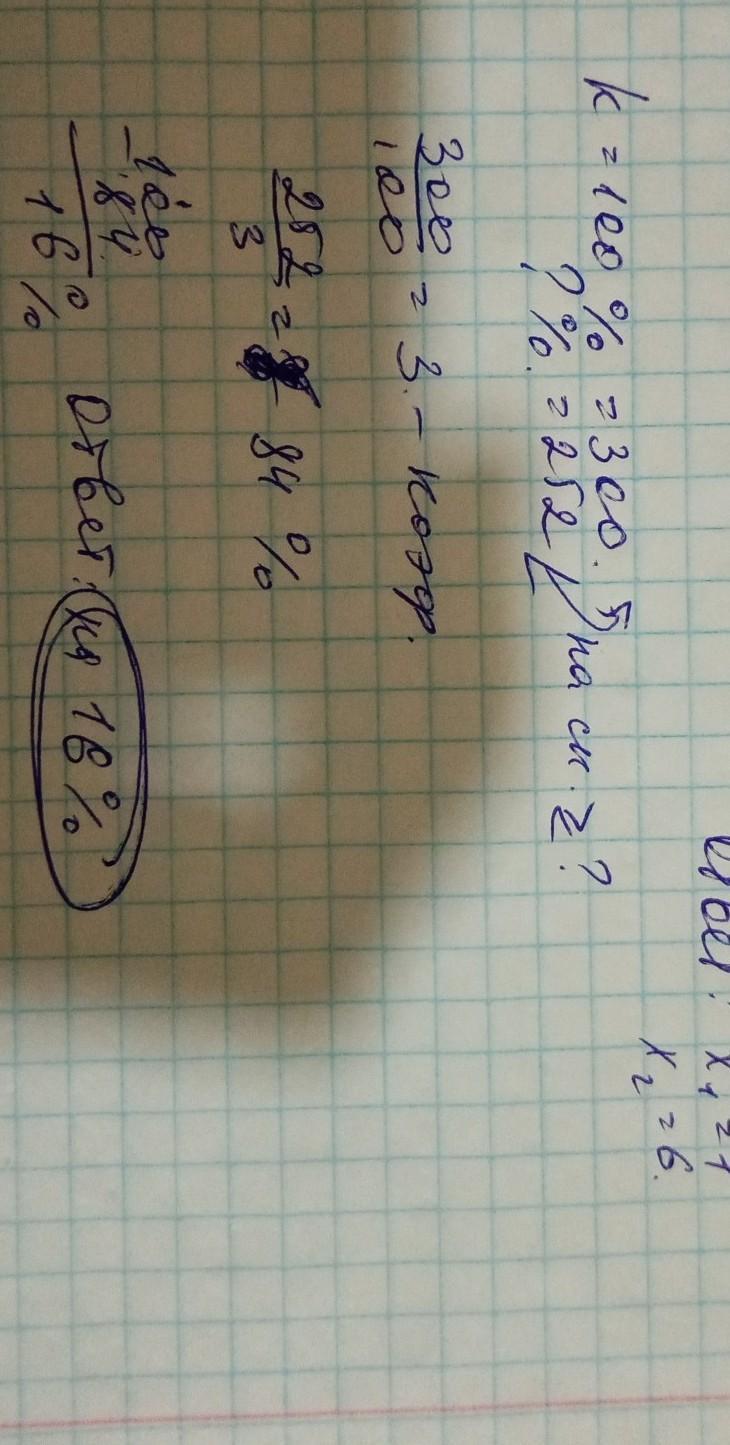 Ответ: x₁ = 1
x₂ = 6.
K = 100 % = 300.
? % = 252
на ск. ?
300/100 = 3. - коэф.
252/3 = 84 %
100
- 84
16 %
Ответ: на 16 %